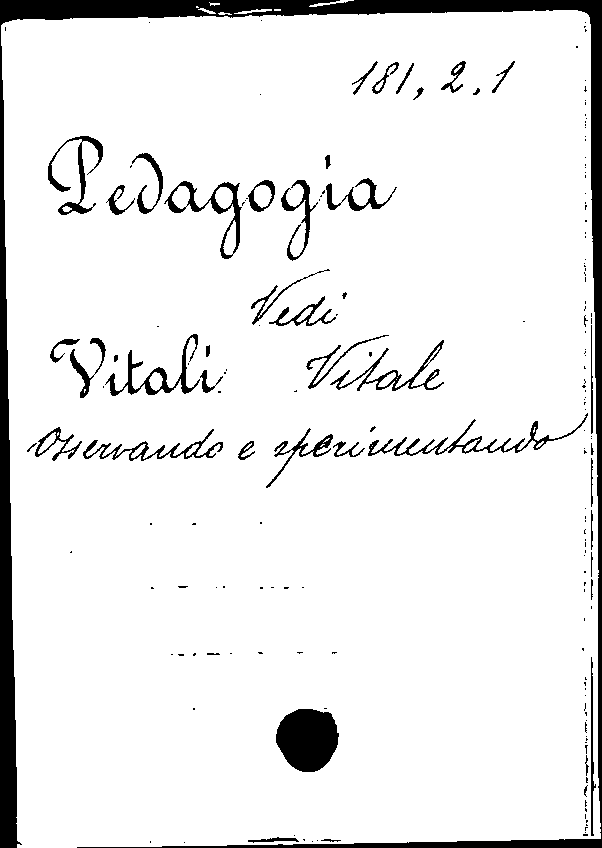 181, 2, 1
Pedagogia
Vedi
Vitali Vitale
Osservando e sperimentando